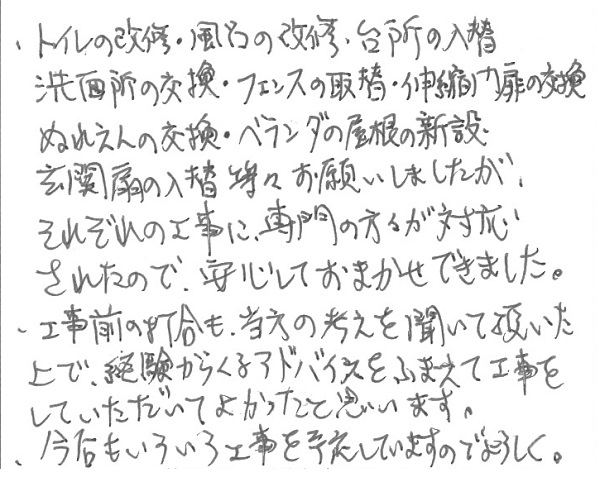 、トイレの改修・風呂の改修、台所の入替
洗面所の交換・フェンスの取替・伸縮門扉の交換
ぬれえんの交換・ベランダの屋根の新設・
玄関扉の入替等々お願いしましたが、
それぞれの工事に、専門の方々が対応
されたので、安心しておまかせできました。
、工事前の打合も、当方の考えを聞いて頂いた
上で、経験からくるアドバイスをふまえて工事を
していただいてよかったと思います。
、今后もいろいろ工事を予定していますのでよろしく。